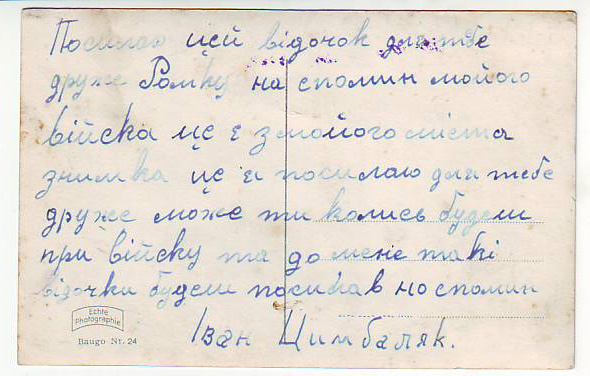 Посилаю цей відочок для тебе
друже Ромку на спомин мойого
війска це є з мойого міста
знимка це я посилаю для тебе
друже може ти колись будеш
при війску та до мене такі
відочки будеш посилав на спомин
Іван Цимбаляк.
Echte
Photographie
Baugo Nr. 24